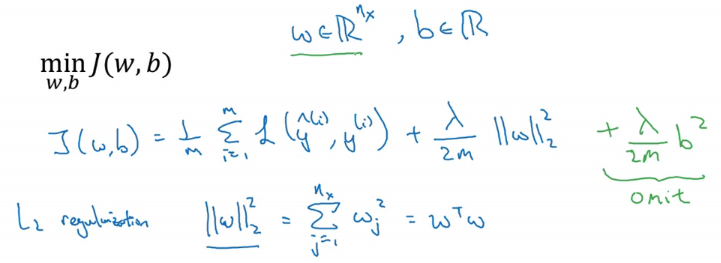 w ∈ ℝ^{n_x}, b ∈ ℝ
min_{w,b} J(w, b)
J(w,b) = 1/m ∑_{i=1}^{m} ℒ(ŷ^{(i)}, y^{(i)}) + λ/2m ||w||_2^2 + λ/2m b^2
omit
L_2 regularization ||w||_2^2 = ∑_{j=1}^{n_x} w_j^2 = w^T w